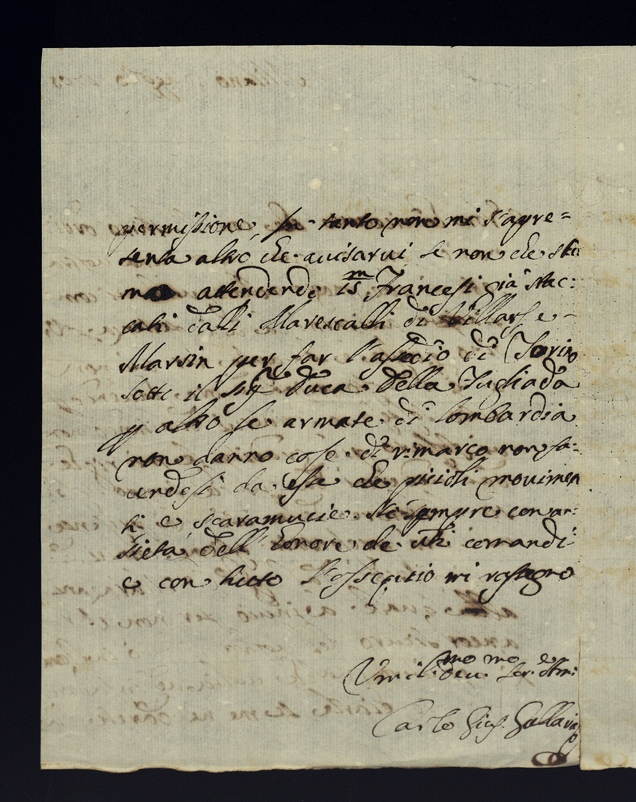 permissione, In tanto non mi s'apre=
senta altro che avisarvi se non che stia
mo attendendo 15m Francesi già stac:
cati dalli Marescalli di Villars e
Marsin per far l'assedio di Torino
sotti il Sigr Duca della Fugliada
p altro le armate di Lombardia
non danno cose di rimarco non fa=
cendosi da essa che piccioli movimen
ti e scaramucie Stò sempre con an=
sietà dell'honore de suoi comandi
e con tutto l'ossequio mi rassegno
Umil:mo Dev:mo Ser:e
Carlo Gius. Gallara